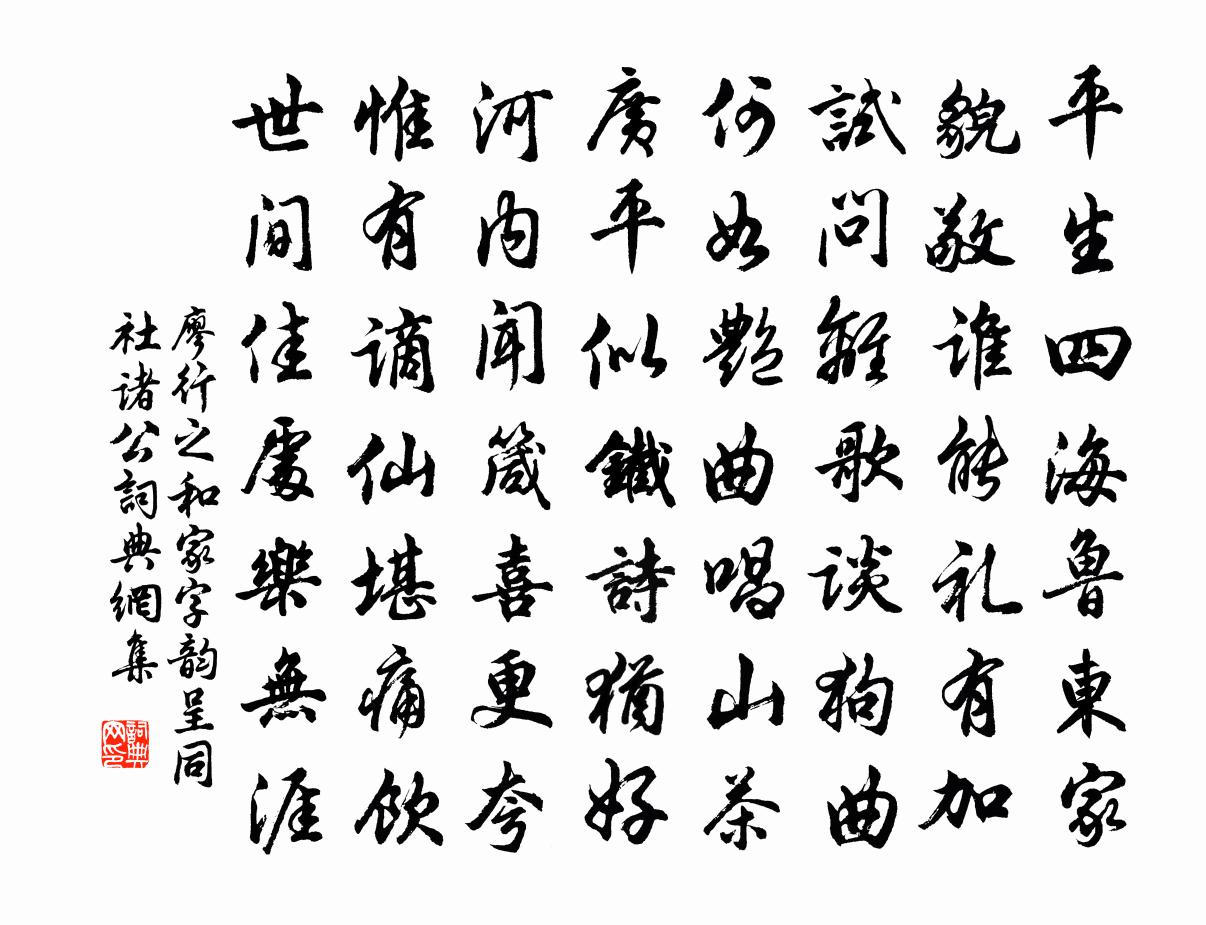 平生四海魯東家
貌敬誰能礼有加
試問雞歌談狗曲
何如艷曲唱山茶
廣平似鐵詩猶好
河内聞箴喜更夸
惟有謫仙堪痛飲
世間佳處樂無涯
廖行之和家字韵呈同
社诸公詞典網集
詞典
网印